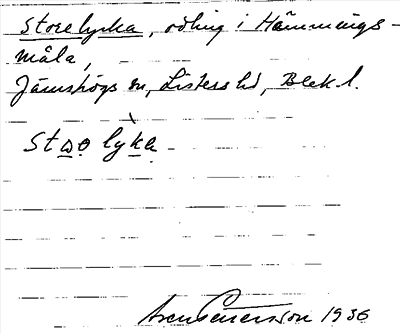 Storelycka, odling i Hämmings-
måla,
Jämshögs sn, Listers hd, Blek. l.
staolyka
Sven Benson 1936